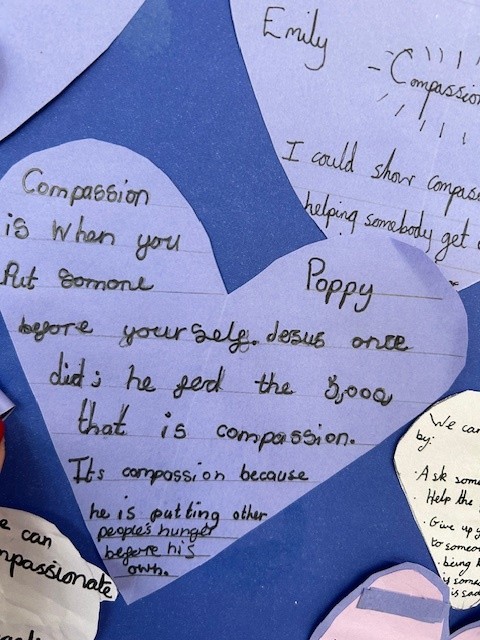 Emily
- Compassion
I could show compass
helping somebody get
Compassion
is when you
Put Somone
Poppy
before your self. Jesus once
did; he fed the 5,000,
that is compassion.
Its compassion because
he is putting other
people's hunger
before his
own.
We can
by:
· Ask some
· Help the
· Give up y
to someo
· being k
is some
is sad
e can
mpassionate